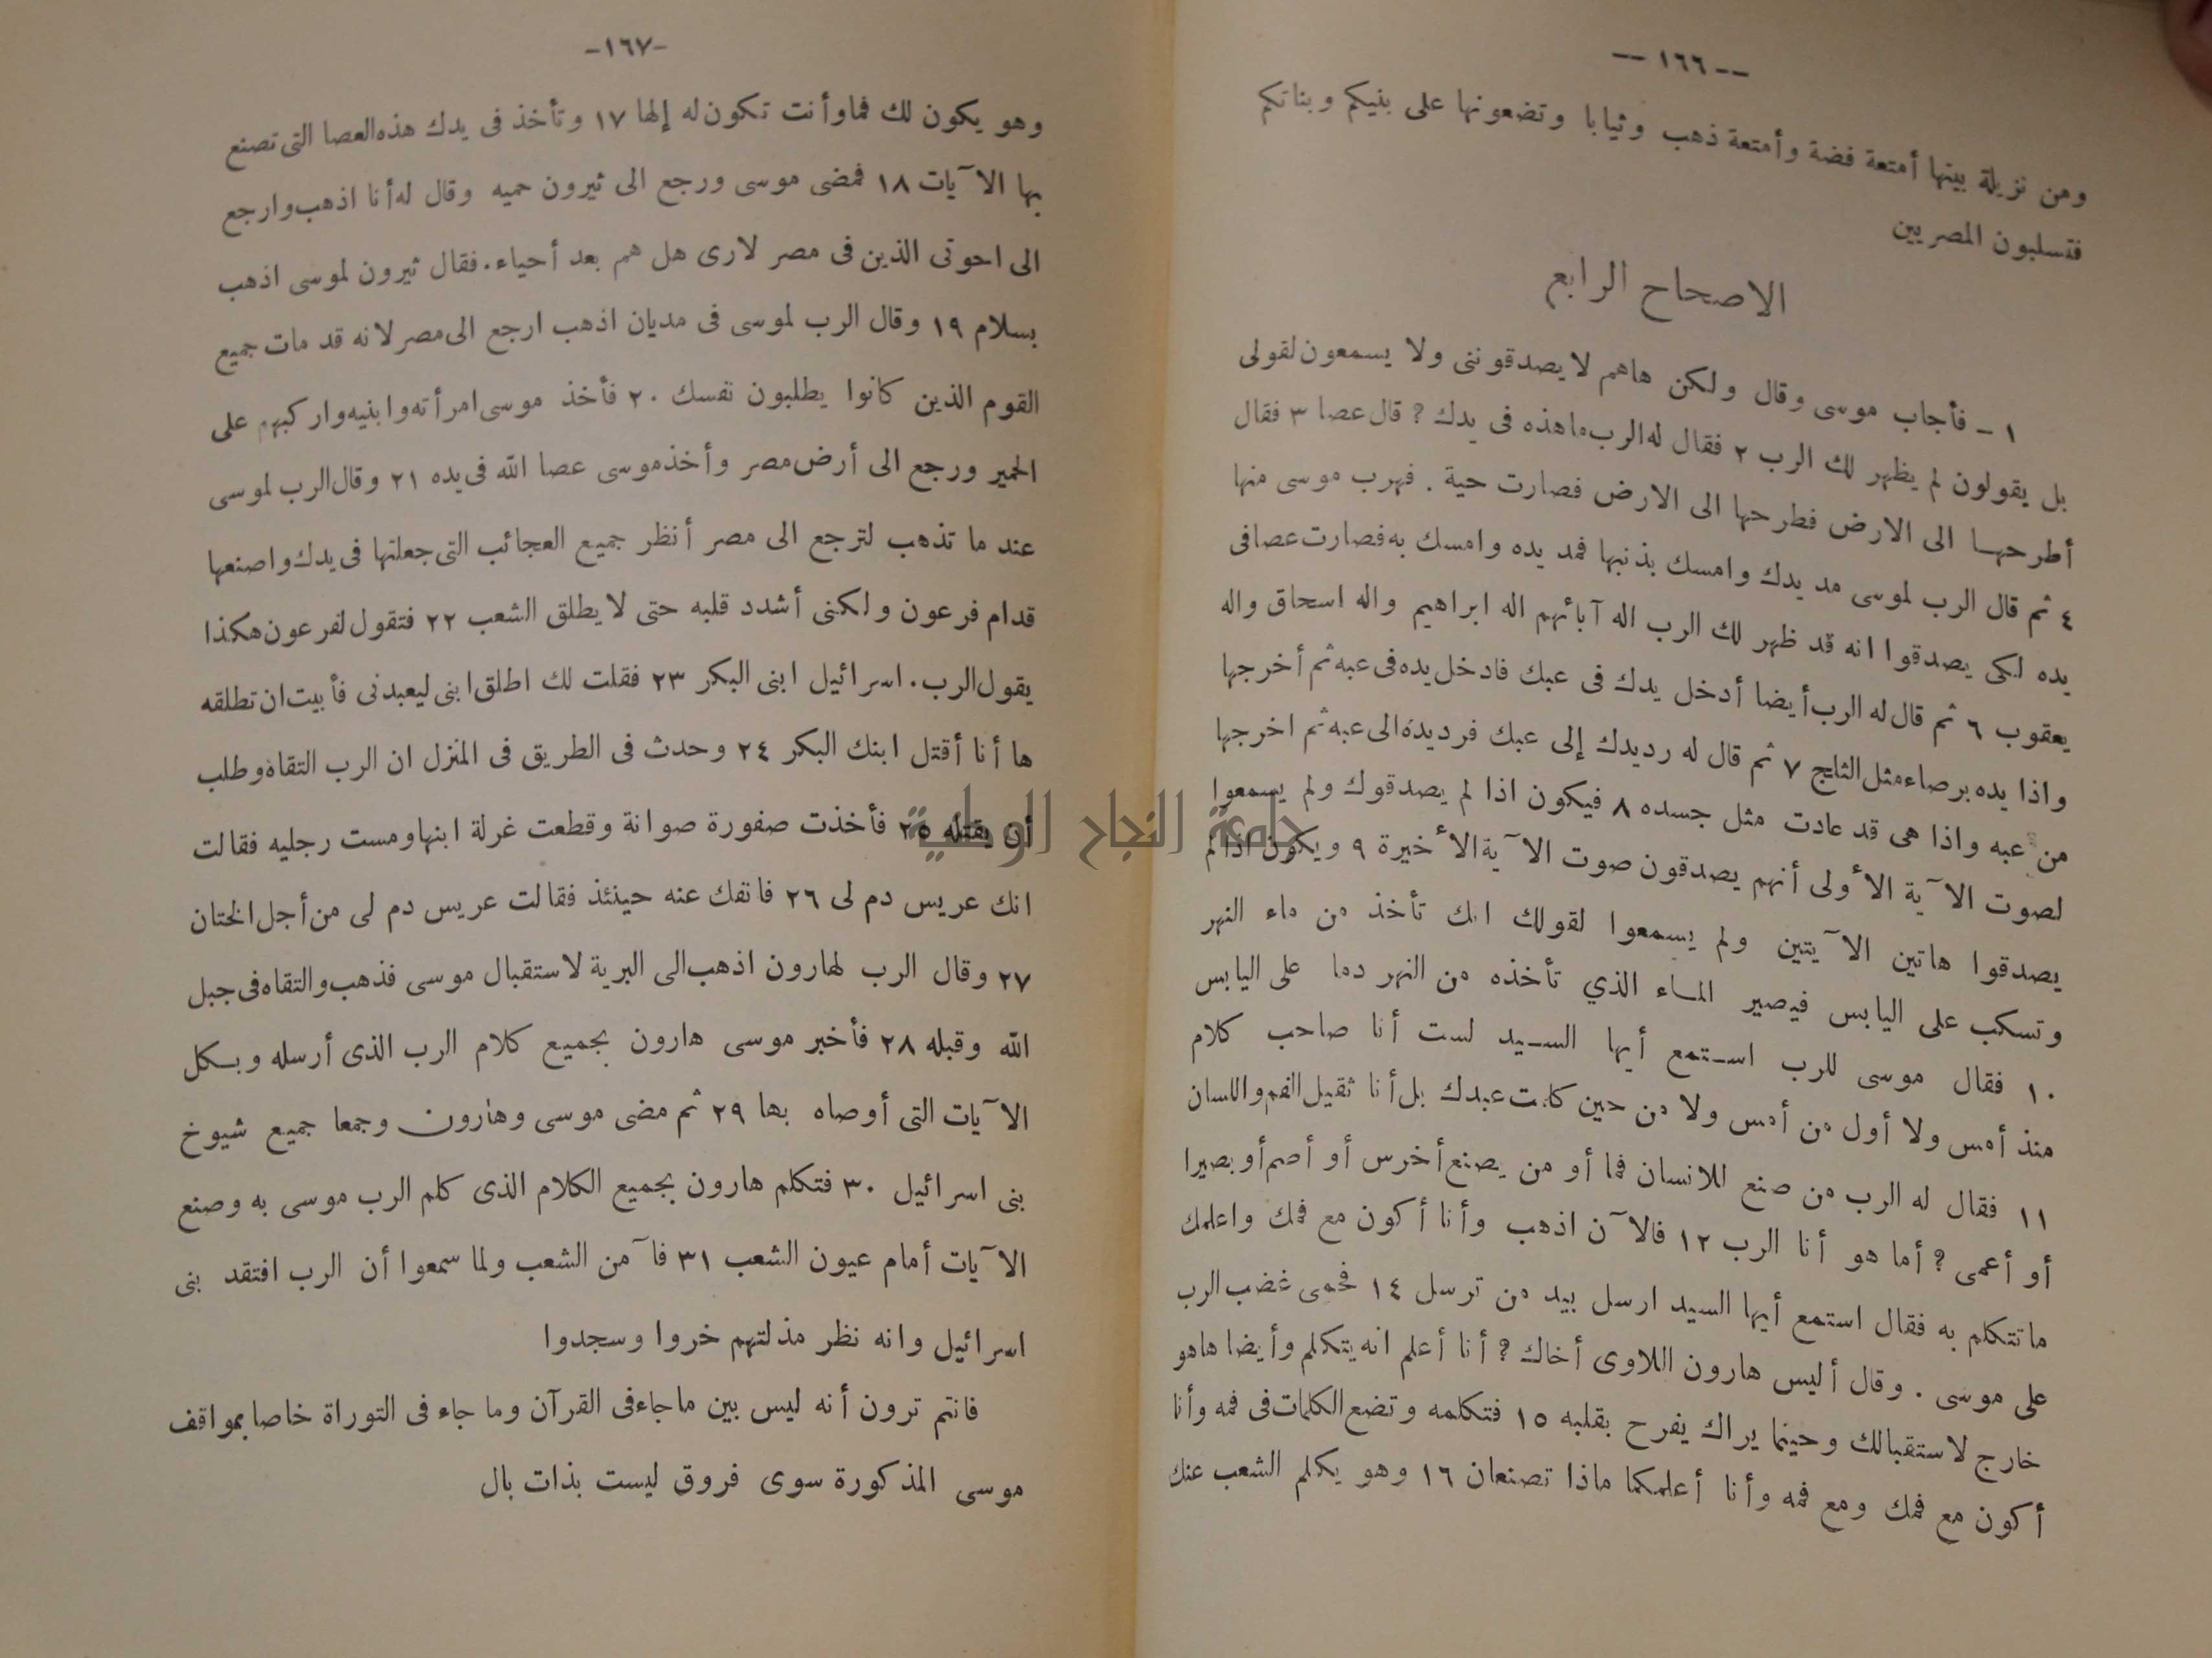 -- ١٦٦ --
ومن نزيلة بيتها أمتعة فضة وأمتعة ذهب وثيابا وتضعونها على بنيكم وبناتكم
فتسلبون المصريين
الاصحاح الرابع
١ - فأجاب موسى وقال ولكن هاهم لا يصدقوننى ولا يسمعون لقولى
بل يقولون لم يظهر لك الرب ٢ فقال له الرب ما هذه فى يدك ? قال عصا ٣ فقال
أطرحها الى الارض فطرحها الى الارض فصارت حية . فهرب موسى منها
٤ ثم قال الرب لموسى مد يدك وامسك بذنبها فمد يده وامسك به فصارت عصا فى
يده لكى يصدقوا انه قد ظهر لك الرب اله آبائهم اله ابراهيم واله اسحاق واله
يعقوب ٦ ثم قال له الرب أيضا أدخل يدك فى عبك فادخل يده فى عبه ثم أخرجها
واذا يده برصاء مثل الثلج ٧ ثم قال له رد يدك إلى عبك فرد يده الى عبه ثم اخرجها
من عبه واذا هى قد عادت مثل جسده ٨ فيكون اذا لم يصدقوك ولم يسمعوا
لصوت الآية الأولى أنهم يصدقون صوت الآية الأخيرة ٩ ويكون اذا لم
يصدقوا هاتين الآيتين ولم يسمعوا لقولك انك تأخذ من ماء النهر
وتسكب على اليابس فيصير الماء الذي تأخذه من النهر دما على اليابس
١٠ فقال موسى للرب استمع أيها السيد لست أنا صاحب كلام
منذ أمس ولا أول من أمس ولا من حين كلمت عبدك بل أنا ثقيل الفم واللسان
١١ فقال له الرب من صنع للانسان فما أو من يصنع أخرس أو أصم أو بصيرا
أو أعمى ? أما هو أنا الرب ١٢ فالآن اذهب وأنا أكون مع فمك واعلمك
ما تتكلم به فقال استمع أيها السيد ارسل بيد من ترسل ١٤ فحمى غضب الرب
على موسى . وقال أليس هارون اللاوى أخاك ? أنا أعلم انه يتكلم وأيضا هاهو
خارج لاستقبالك وحينما يراك يفرح بقلبه ١٥ فتكلمه وتضع الكلمات فى فمه وأنا
أكون مع فمك ومع فمه وأنا أعلمكما ماذا تصنعان ١٦ وهو يكلم الشعب عنك
-١٦٧-
وهو يكون لك فما وأنت تكون له إلها ١٧ وتأخذ فى يدك هذه العصا التى تصنع
بها الآيات ١٨ فمضى موسى ورجع الى ثيرون حميه وقال له أنا اذهب وارجع
الى احوتى الذين فى مصر لارى هل هم بعد أحياء . فقال ثيرون لموسى اذهب
بسلام ١٩ وقال الرب لموسى فى مديان اذهب ارجع الى مصر لانه قد مات جميع
القوم الذين كانوا يطلبون نفسك ٢٠ فأخذ موسى امرأته وابنيه واركبهم على
الحمير ورجع الى أرض مصر وأخذ موسى عصا الله فى يده ٢١ وقال الرب لموسى
عند ما تذهب لترجع الى مصر أنظر جميع العجائب التى جعلتها فى يدك واصنعها
قدام فرعون ولكنى أشدد قلبه حتى لا يطلق الشعب ٢٢ فتقول لفرعون هكذا
يقول الرب . اسرائيل ابنى البكر ٢٣ فقلت لك اطلق ابنى ليعبدنى فأبيت ان تطلقه
ها أنا أقتل ابنك البكر ٢٤ وحدث فى الطريق فى المنزل ان الرب التقاه وطلب
أن يقتله ٢٥ فأخذت صفورة صوانة وقطعت غرلة ابنها ومست رجليه فقالت
انك عريس دم لى ٢٦ فانفك عنه حينئذ فقالت عريس دم لى من أجل الختان
٢٧ وقال الرب لهارون اذهب الى البرية لاستقبال موسى فذهب والتقاه فى جبل
الله وقبله ٢٨ فأخبر موسى هارون بجميع كلام الرب الذى أرسله وبكل
الآيات التى أوصاه بها ٢٩ ثم مضى موسى وهارون وجمعا جميع شيوخ
بنى اسرائيل ٣٠ فتكلم هارون بجميع الكلام الذى كلم الرب موسى به وصنع
الآيات أمام عيون الشعب ٣١ فآمن الشعب ولما سمعوا أن الرب افتقد بنى
اسرائيل وانه نظر مذلتهم خروا وسجدوا
فانتم ترون أنه ليس بين ما جاء فى القرآن وما جاء فى التوراة خاصا بمواقف
موسى المذكورة سوى فروق ليست بذات بال
جامعة النجاح الوطنية